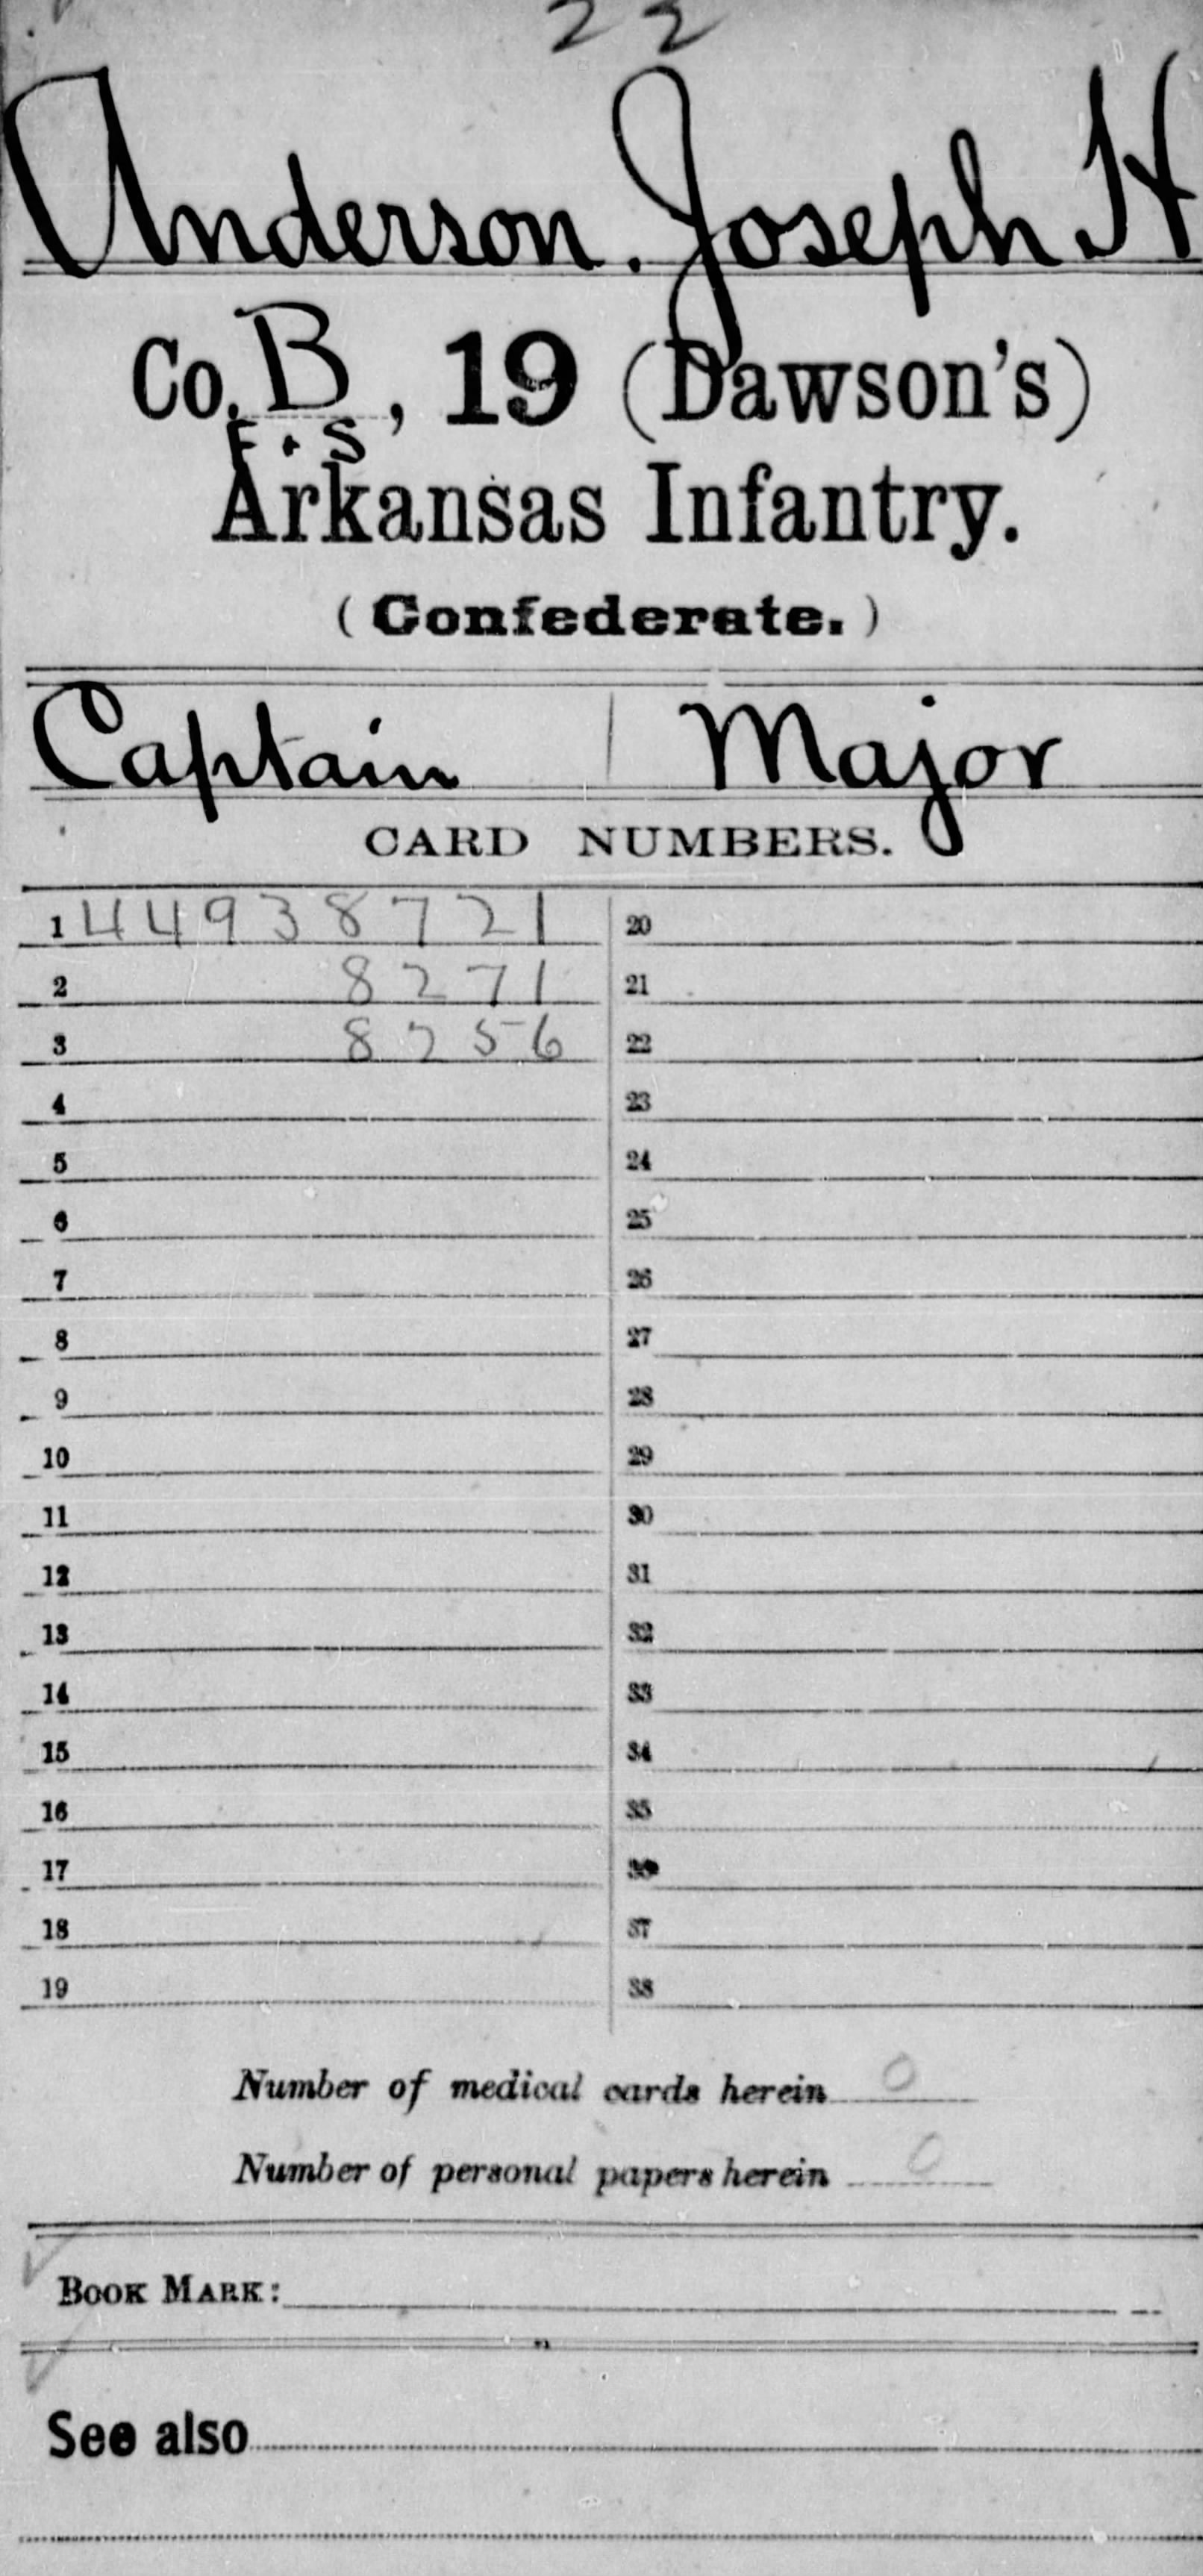 22
Anderson, Joseph H
Co. B, 19 (Dawson's)
F. S
Arkansas Infantry.
(Confederate.)
Captain | Major
CARD NUMBERS.
1 44938721 20
2 8271 21
3 8256 22
4 23
5 24
6 25
7 26
8 27
9 28
10 29
11 30
12 31
13 32
14 33
15 34
16 35
17 36
18 37
19 38
Number of medical cards herein 0
Number of personal papers herein 0
BOOK MARK:
See also